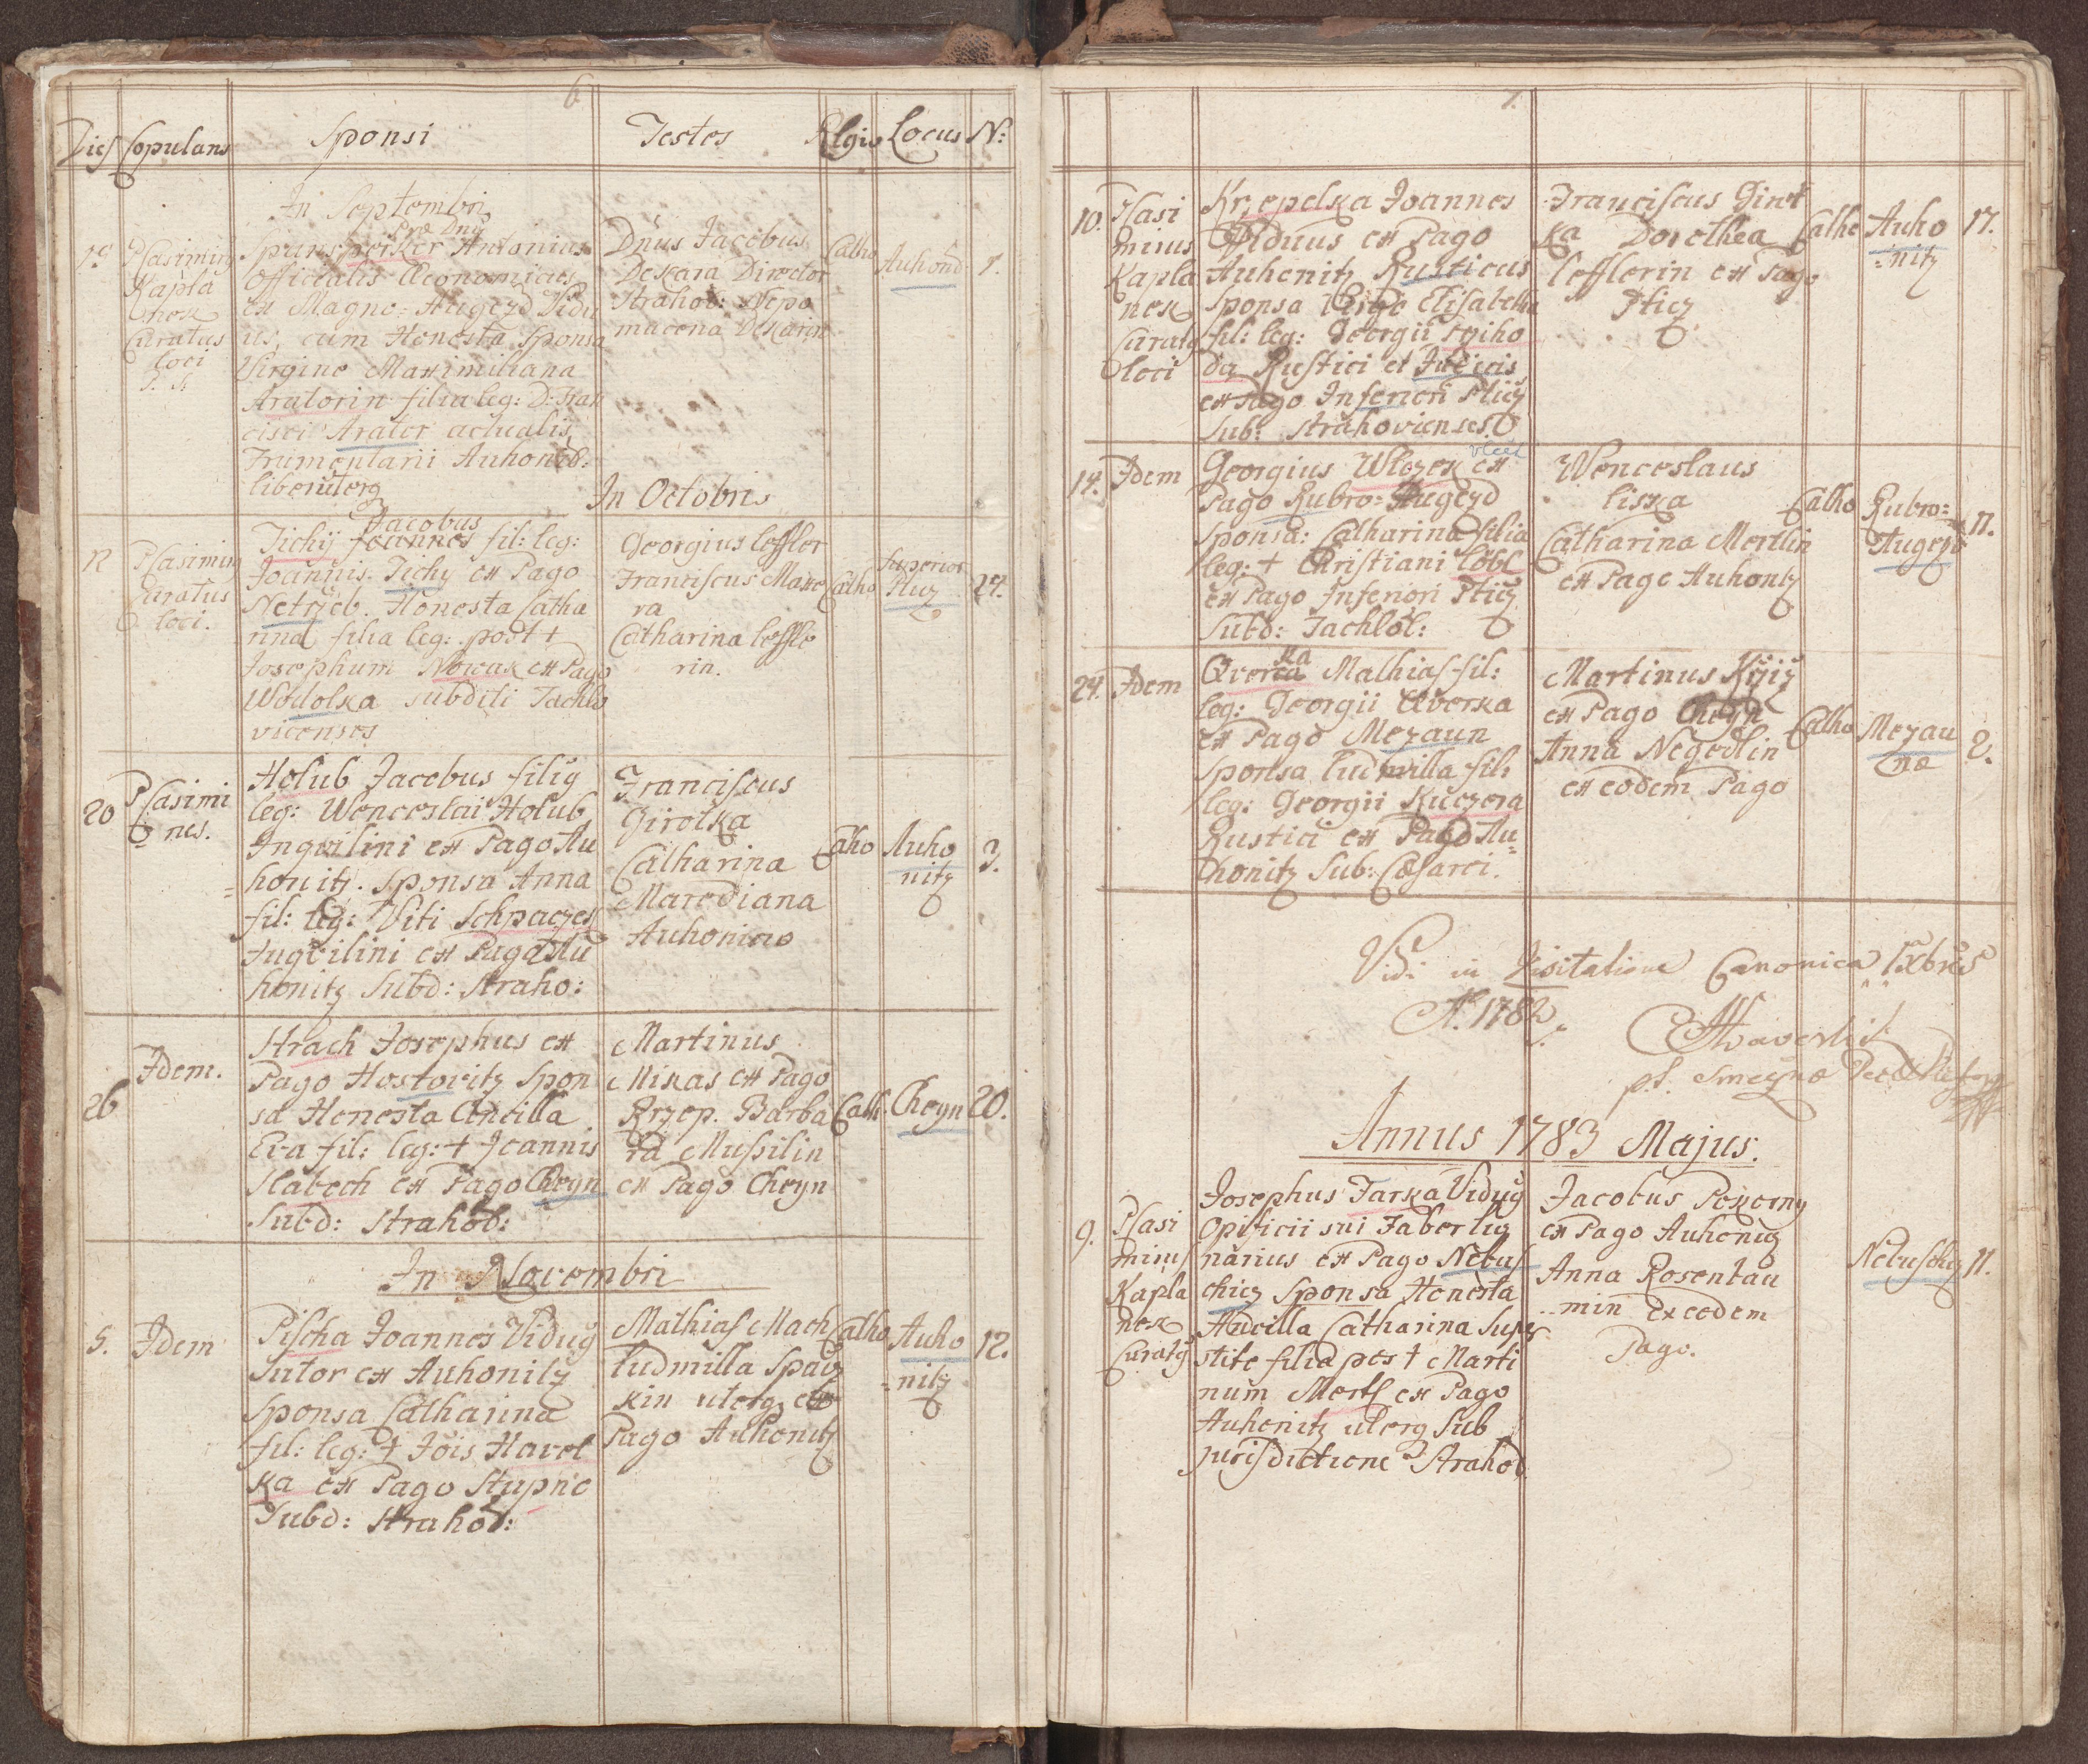 6
Dies Copulans Sponsi Testes Rlgio Locus N:
In Septembri
Præ Dnus
Antonius
Officialis Œconomiæ
ex Magno=Augezd Vidu
us, cum Honesta Sponsa
Virgine Maximiliana
Aratorin filia leg: D: Fran
cisci Arator actualis
Frumentarii Auhonitz:
liber uterq
P Casimirus
Kapla
nek
Curatus
loci
Dnus Jacobus
Dekara Director
Strahov: Nepo
mucena Dekarin
Catho
1.
In Octobris
12
P Casimirus
Curatus
loci.
Jacobus
Tichy Joannes fil: leg:
Joannis Tichy ex Pago
Netrzeb. Honesta Catha
rina filia leg: post †
Josephum Nowak ex Pago
Wodolka subditi Tachlo
vicenses
Georgius Leffler
Franciscus Maxe
ra
Catharina Leffle
rin.
Catho
Superior
Pticz
24.
20
P Casimi
nes.
Holub Jacobus filiq
leg: Wenceslai Holub
Inqvilini ex Pago Au
honitz. Sponsa Anna
fil: leg: Viti Schpaczek
Inqvilini ex Pago Au
honitz Subd: Straho:
Franciscus
Girotka
Catharina
Marediana
Catho
Auho
nitz
3.
26
Idem.
Strach Josephus ex
Pago Hostovitz Spon
sa Honesta Ancilla
Eva fil: leg: † Joannis
Slabech ex Pago Cheyn
Subd: Strahov:
Martinus
Mikas ex Pago
Rzep. Barba
ra Mussilin
ex Pago Cheyn
Cath.
Cheyn
20.
In Novembri
5.
Idem
Pischa Joannes Viduq
Sutor ex Auhonitz
Sponsa Catharina
fil: leg: † Jois Havel
ka ex Pago Stupnc
Subd: Strahov:
Mathias Mach
Ludmilla Spacz
kin uterq ex
Pago Auhonitz
Catho
Auho
=nitz
12.
7.
10.
P Casi
mirus
Kapla
nek
Curatq
loci
Krzepelka Joannes
Viduus ex Pago
Auhonitz Rusticus
Sponsa Virgo Elisabetha
fil: leg: Georgii Rziho
da Rustici et Judicis
ex Pago Inferiori Pticz
Sub: Strahovienses
Franciscus Girot
ka Dorothea
Lefflerin ex Pago
Pticz
Catho
Auho
=nitz
17.
14.
Idem
Georgius Wlczek ex
vlček
Pago Rubro=Augezd
Sponsa: Catharina filia
leg: † Christiani Löbl
ex Pago Inferiori Pticz
Subd: Tachlov:
Wenceslaus
Liska
Catharina Mertlin
ex Pago Auhontz
Catho
Rubro=
Augezd
11.
24.
Idem
ka
Qverca Mathias fil:
leg: Georgii Qverka
ex Pago Mezaun
Sponsa Ludmilla fil:
leg: Georgii Kuczera
Rustici ex Pago Au=
honitz Sub: Cæsarei.
Martinus Krziz
ex Pago Cheyn
Anna Negedlin
ex eodem Pago
Catho
Mezau
næ
2.
Vidi in Visitatione Canonica
A. 1782.
Annus 1783 Majus.
9.
P Casi
mirus
Kapla
nek
Curatq
Josephus Farka Viduq
Opificii sui Faber lig
narius ex Pago Nebus
chicz Sponsa Honesta
Ancilla Catharina Super
stite filia post † Marti
num Mertl ex Pago
Auhonitz uterq Sub
jurisdictione Strahov
Jacobus Pokorny
ex Pago Auhonicz
Anna Rosenbau
min Ex eodem
Pago.
Nebuschicz
11.